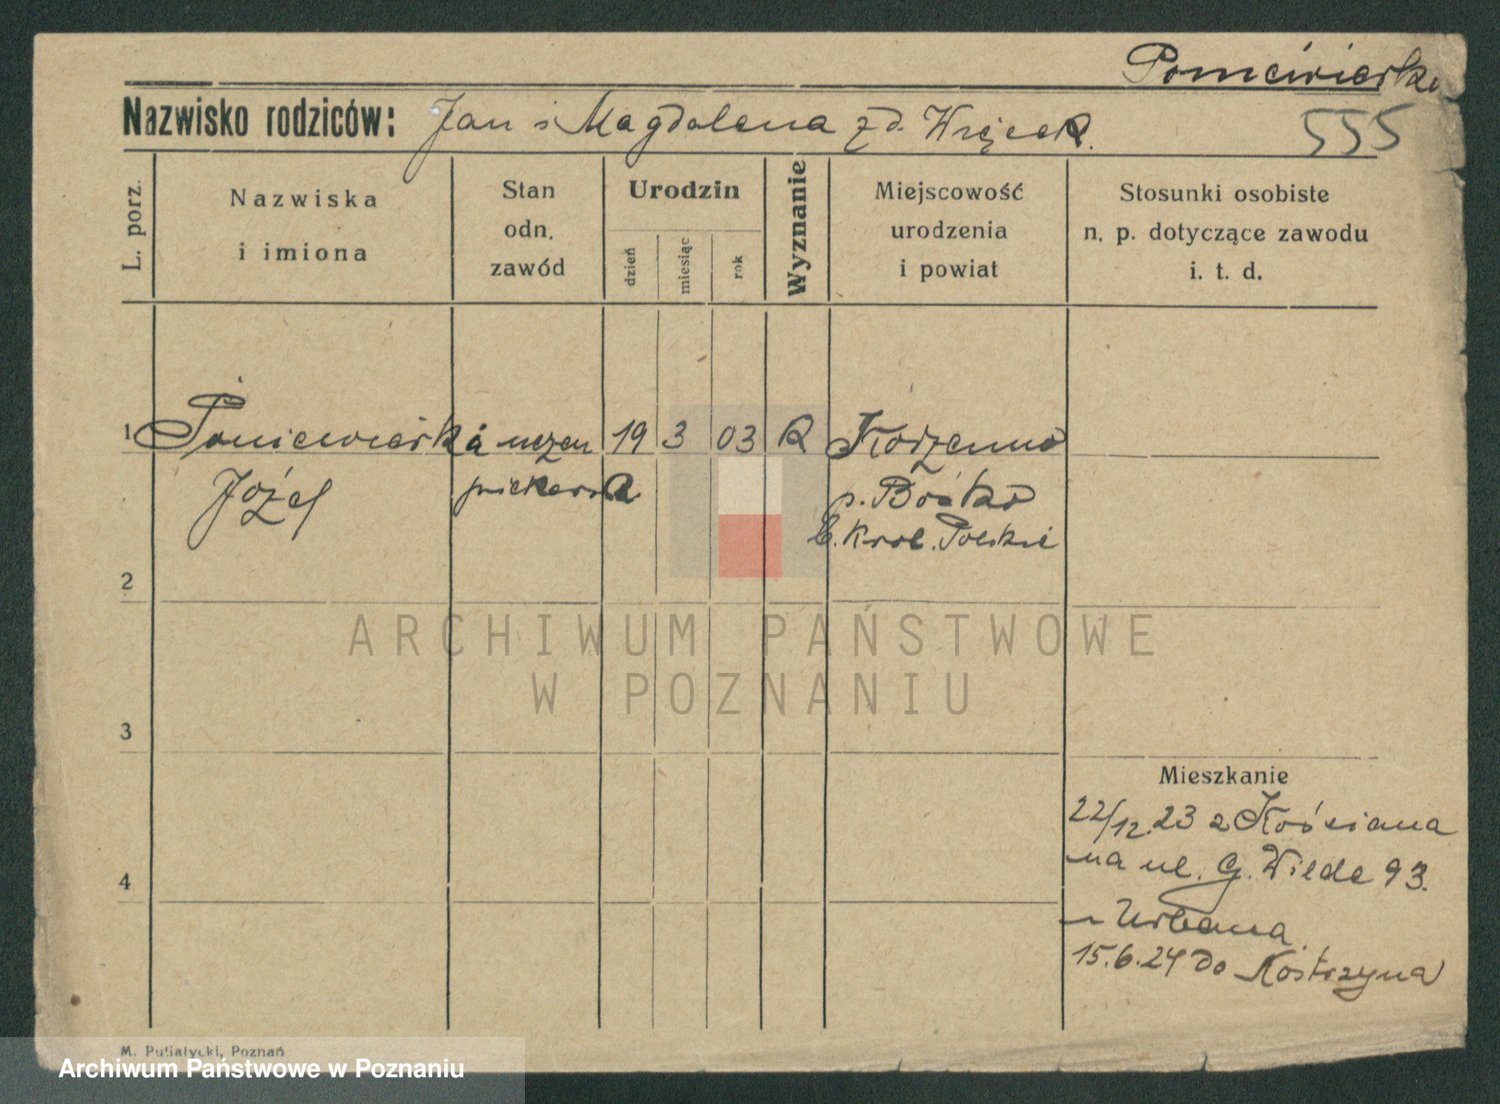 Poniewierka
Nazwisko rodziców: Jan i Magdalena z d.
555
L. porz.
Nazwiska
i imiona
Stan
odn.
zawód
Urodzin
dzień
miesiąc
rok
Wyznanie
Miejscowość
urodzenia
i powiat
Stosunki osobiste
n. p. dotyczące zawodu
i. t. d.
1 Poniewierka uczeń 19 3 03 R
Józef piekarski
b. Król. Polskie
2
3
4
Mieszkanie
22/12.23 z Kościana
na ul. G. Wilda 93.
u Urbana.
15.6.24 do Kostrzyna
M. Putiatycki, Poznań
ARCHIWUM PAŃSTWOWE
W POZNANIU
Archiwum Państwowe w Poznaniu